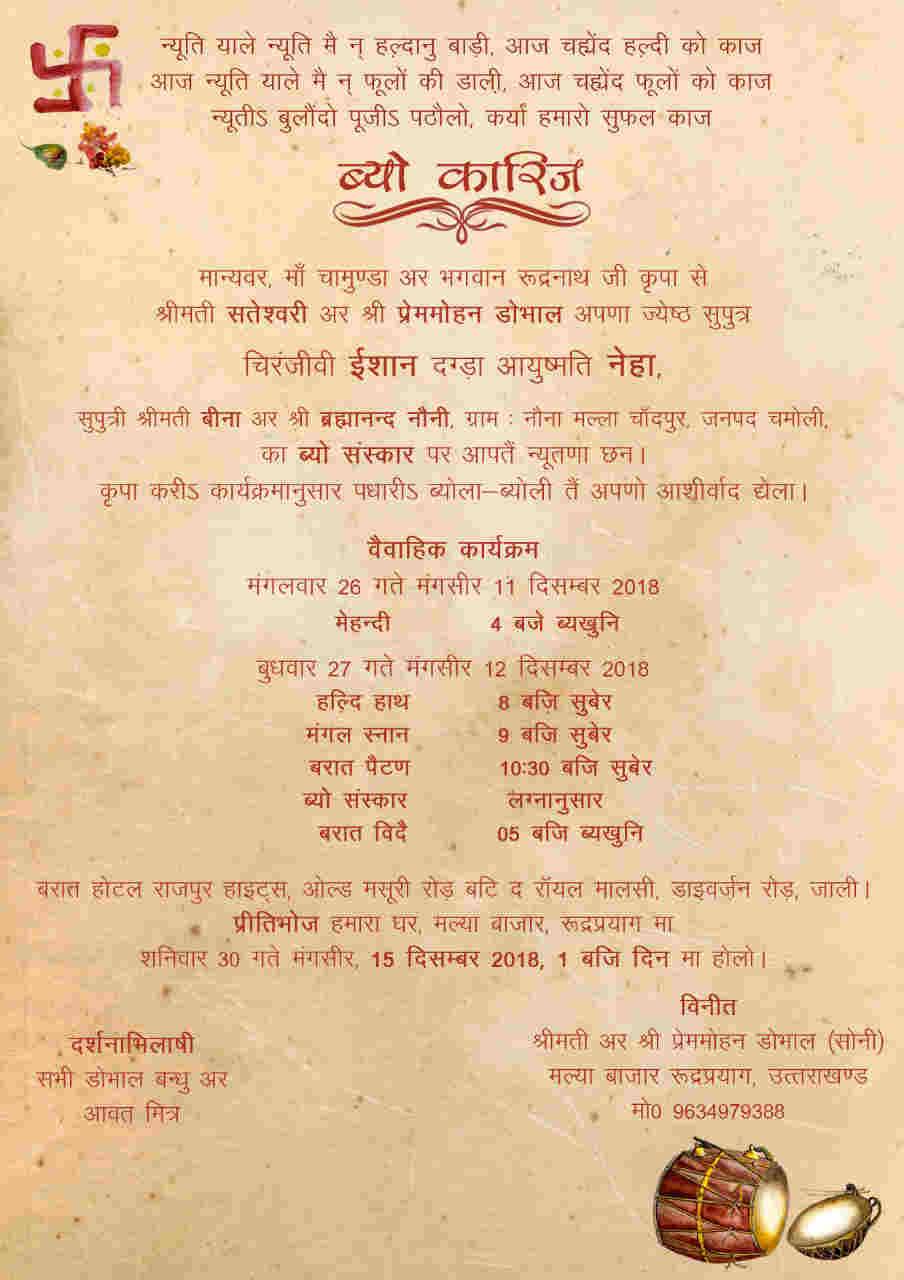 न्यूति याले न्यूति मै न् हल्दानु बाड़ी, आज चह्येंद हल्दी को काज
आज न्यूति याले मै न् फूलों की डाली, आज चह्येंद फूलों को काज
न्यूतीऽ बुलौंदो पूजीऽ पठौलो, कर्यां हमारो सुफल काज
ब्यो कारिज
मान्यवर, माँ चामुण्डा अर भगवान रूद्रनाथ जी कृपा से
श्रीमती सतेश्वरी अर श्री प्रेममोहन डोभाल अपणा ज्येष्ठ सुपुत्र
चिरंजीवी ईशान दगड़ा आयुष्मति नेहा,
सुपुत्री श्रीमती बीना अर श्री ब्रह्मानन्द नौनी, ग्राम : नौना मल्ला चाँदपुर, जनपद चमोली,
का ब्यो संस्कार पर आपतैं न्यूतणा छन।
कृपा करीऽ कार्यक्रमानुसार पधारीऽ ब्योला–ब्योली तैं अपणो आशीर्वाद द्येला।
वैवाहिक कार्यक्रम
मंगलवार 26 गते मंगसीर 11 दिसम्बर 2018
मेहन्दी 4 बजे ब्यखुनि
बुधवार 27 गते मंगसीर 12 दिसम्बर 2018
हल्दि हाथ 8 बजि सुबेर
मंगल स्नान 9 बजि सुबेर
बरात पैटण 10:30 बजि सुबेर
ब्यो संस्कार लग्नानुसार
बरात विदै 05 बजि ब्यखुनि
बरात होटल राजपुर हाइट्स, ओल्ड मसूरी रोड़ बटि द रॉयल मालसी, डाइवर्जन रोड़, जाली।
प्रीतिभोज हमारा घर, मल्या बाजार, रूद्रप्रयाग मा
शनिवार 30 गते मंगसीर, 15 दिसम्बर 2018, 1 बजि दिन मा होलो।
विनीत
श्रीमती अर श्री प्रेममोहन डोभाल (सोनी)
मल्या बाजार रूद्रप्रयाग, उत्तराखण्ड
मो0 9634979388
दर्शनाभिलाषी
सभी डोभाल बन्धु अर
आवत मित्र